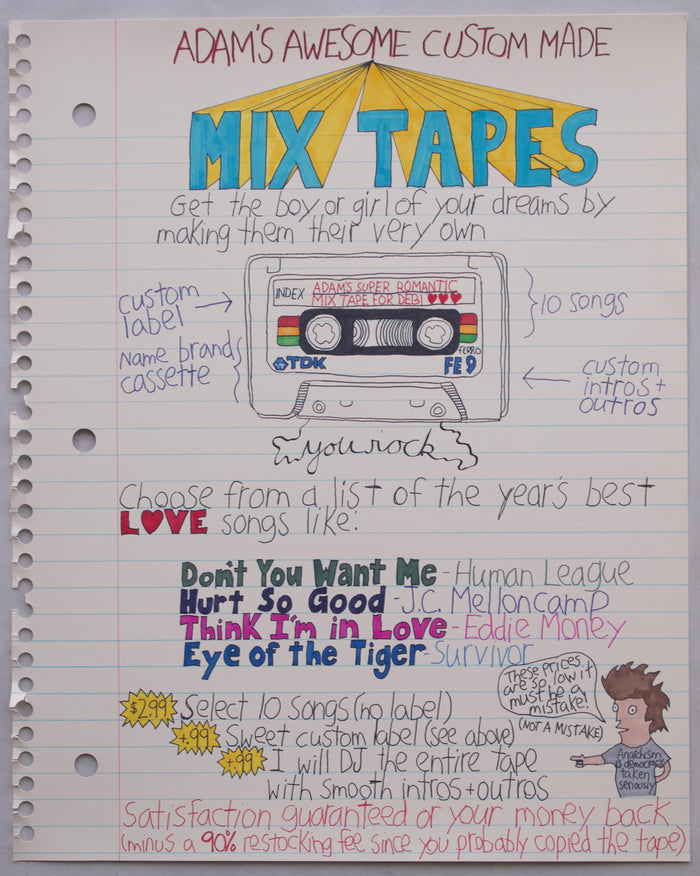 ADAM'S AWESOME CUSTOM MADE
MIX TAPES
Get the boy or girl of your dreams by
making them their very own
custom
label
Name brand
cassette
INDEX
ADAM'S SUPER ROMANTIC
MIX TAPE FOR DEBI
TDK
FERRO
FE 9
10 songs
custom
intros +
outros
you rock
Choose from a list of the year's best
LOVE songs like:
Don't You Want Me - Human League
Hurt So Good - J.C. Melloncamp
Think I'm in Love - Eddie Money
Eye of the Tiger - Survivor
$2.99 Select 10 songs (no label)
+.99 Sweet custom label (see above)
+.99 I will DJ the entire tape
with smooth intros + outros
These prices
are so low it
must be a
mistake!
(NOT A MISTAKE)
Anarchism
is democracy
taken
seriously
Satisfaction guaranteed or your money back
(minus a 90% restocking fee since you probably copied the tape)